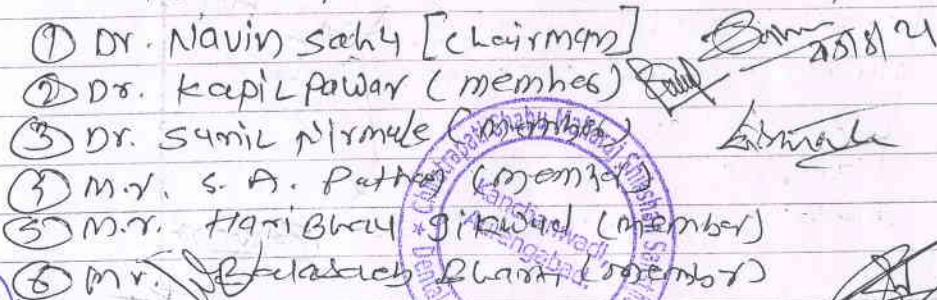 ① Dr. Navin Sahu [Chairman]
② Dr. Kapil Pawar (member)
③ Dr. Sunil Nirmale (member)
④ Mr. S. A. Pathan (member)
⑤ Mr. Haribhau Gikwad (member)
⑥ Mr. Balasaheb (member)
Chhatrapati Shahu Maharaj Shikshan
Kanchanwadi,
Aurangabad.
Dental